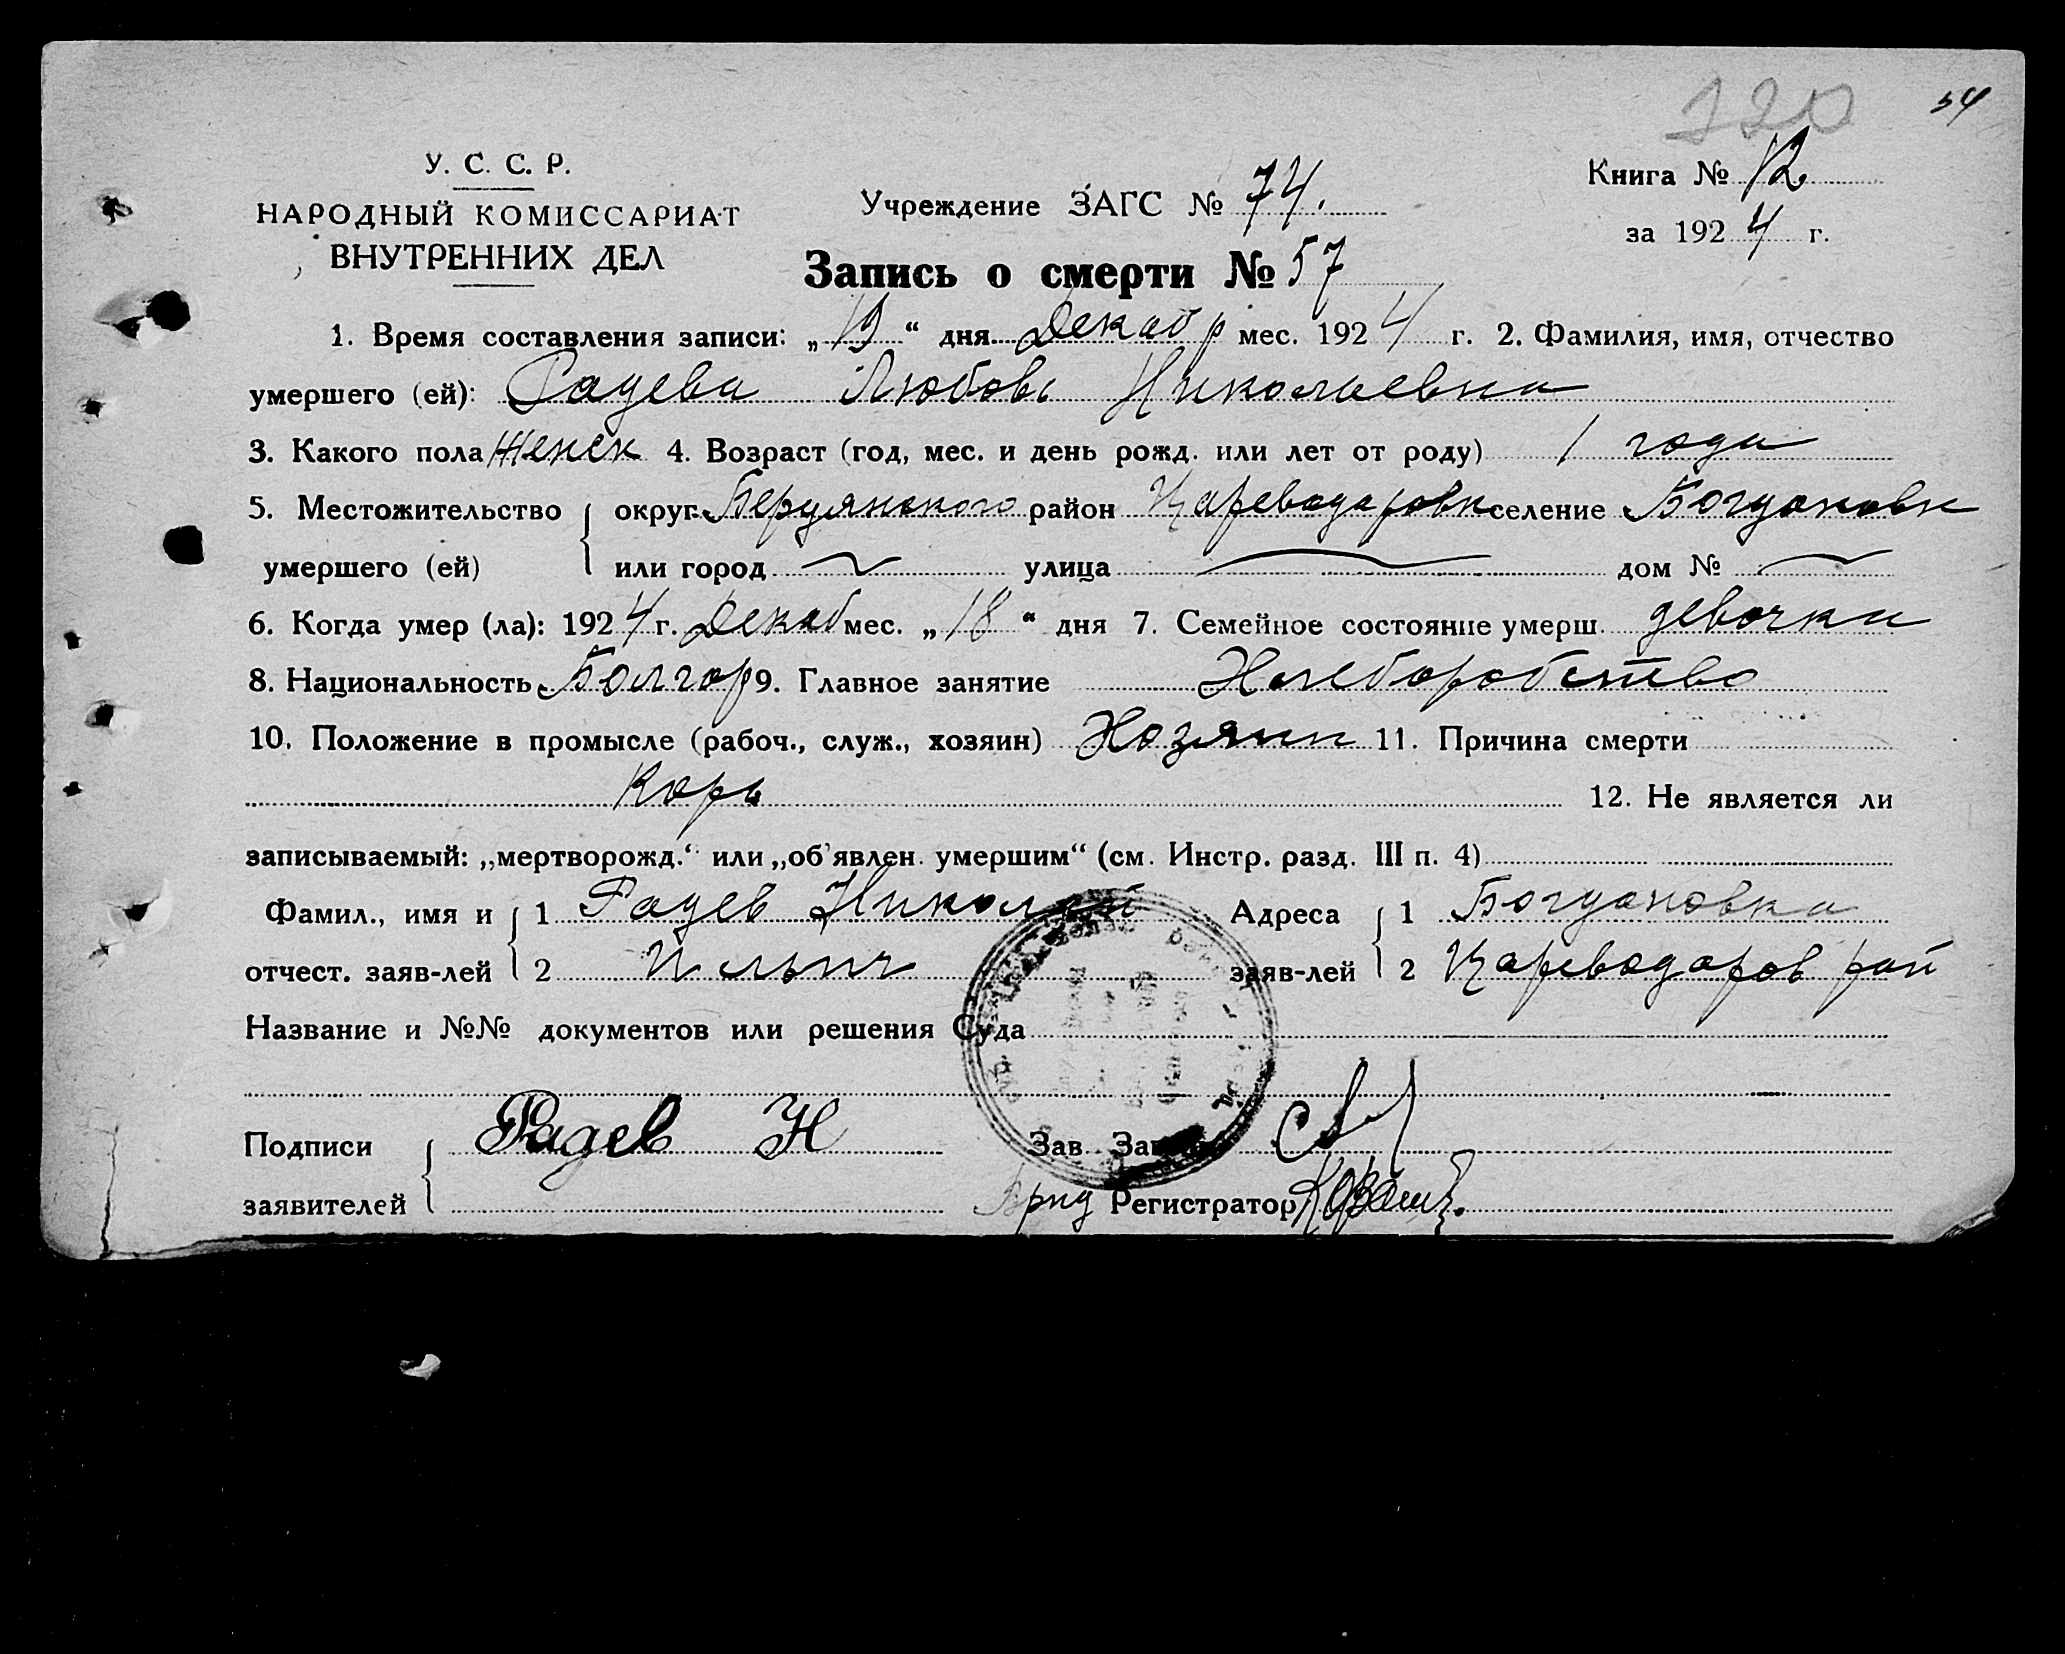 120 54
У. С. С. Р.
НАРОДНЫЙ КОМИССАРИАТ
ВНУТРЕННИХ ДЕЛ
Учреждение ЗАГС № 74.
Книга № 12
за 1924 г.
Запись о смерти № 57
1. Время составления записи: „19“ дня Декабр мес. 1924 г. 2. Фамилия, имя, отчество
умершего (ей): Радева Любовь Николаевна
3. Какого пола Женск 4. Возраст (год, мес. и день рожд. или лет от роду) 1 года
5. Местожительство округ. Бердянского район Цареводаровк селение Богдановк
умершего (ей) или город улица дом №
6. Когда умер (ла): 1924 г. Декаб мес. „18“ дня 7. Семейное состояние умерш. девочка
8. Национальность Болгар 9. Главное занятие Хлеборобство
10. Положение в промысле (рабоч., служ., хозяин) Хозяин 11. Причина смерти
Корь 12. Не является ли
записываемый: „мертворожд.“ или „об'явлен. умершим“ (см. Инстр. разд. III п. 4)
Фамил., имя и 1 Радев Николай Адреса 1 Богдановка
отчест. заяв-лей 2 Ильич заяв-лей 2 Цареводаров рай
Название и №№ документов или решения Суда
Подписи Радев Н Зав.
заявителей Врид Регистратор